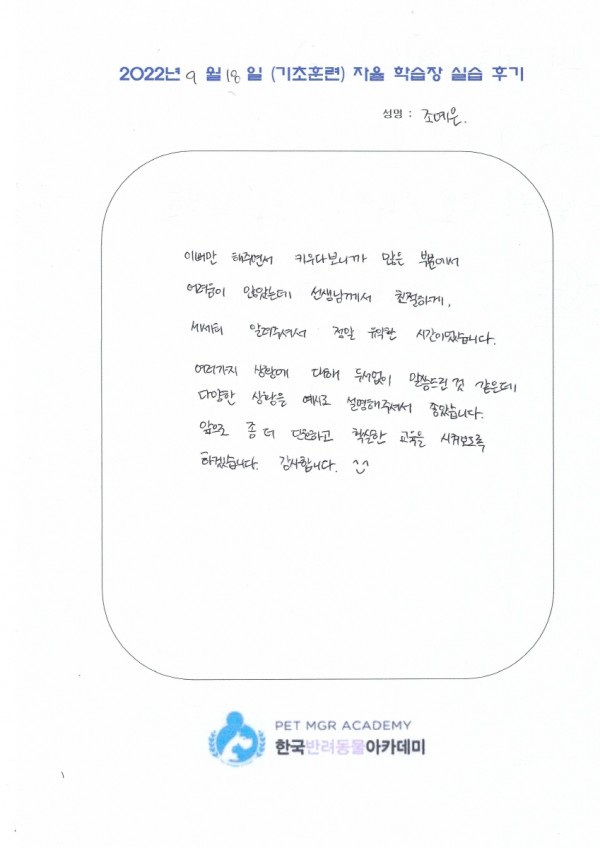 2022년 9 월 18 일 (기초훈련) 자율 학습장 실습 후기
성명 : 조예은.
이뻐만 해주면서 키우다보니까 많은 부분에서
어려움이 많았는데 선생님께서 친절하게,
세세히 알려주셔서 정말 유익한 시간이었습니다.
여러가지 상황에 대해 두서없이 말씀드린 것 같은데
다양한 상황을 예시로 설명해주셔서 좋았습니다.
앞으로 좀 더 단호하고 확실한 교육을 시켜보도록
하겠습니다. 감사합니다. ^^
PET MGR ACADEMY
한국반려동물아카데미